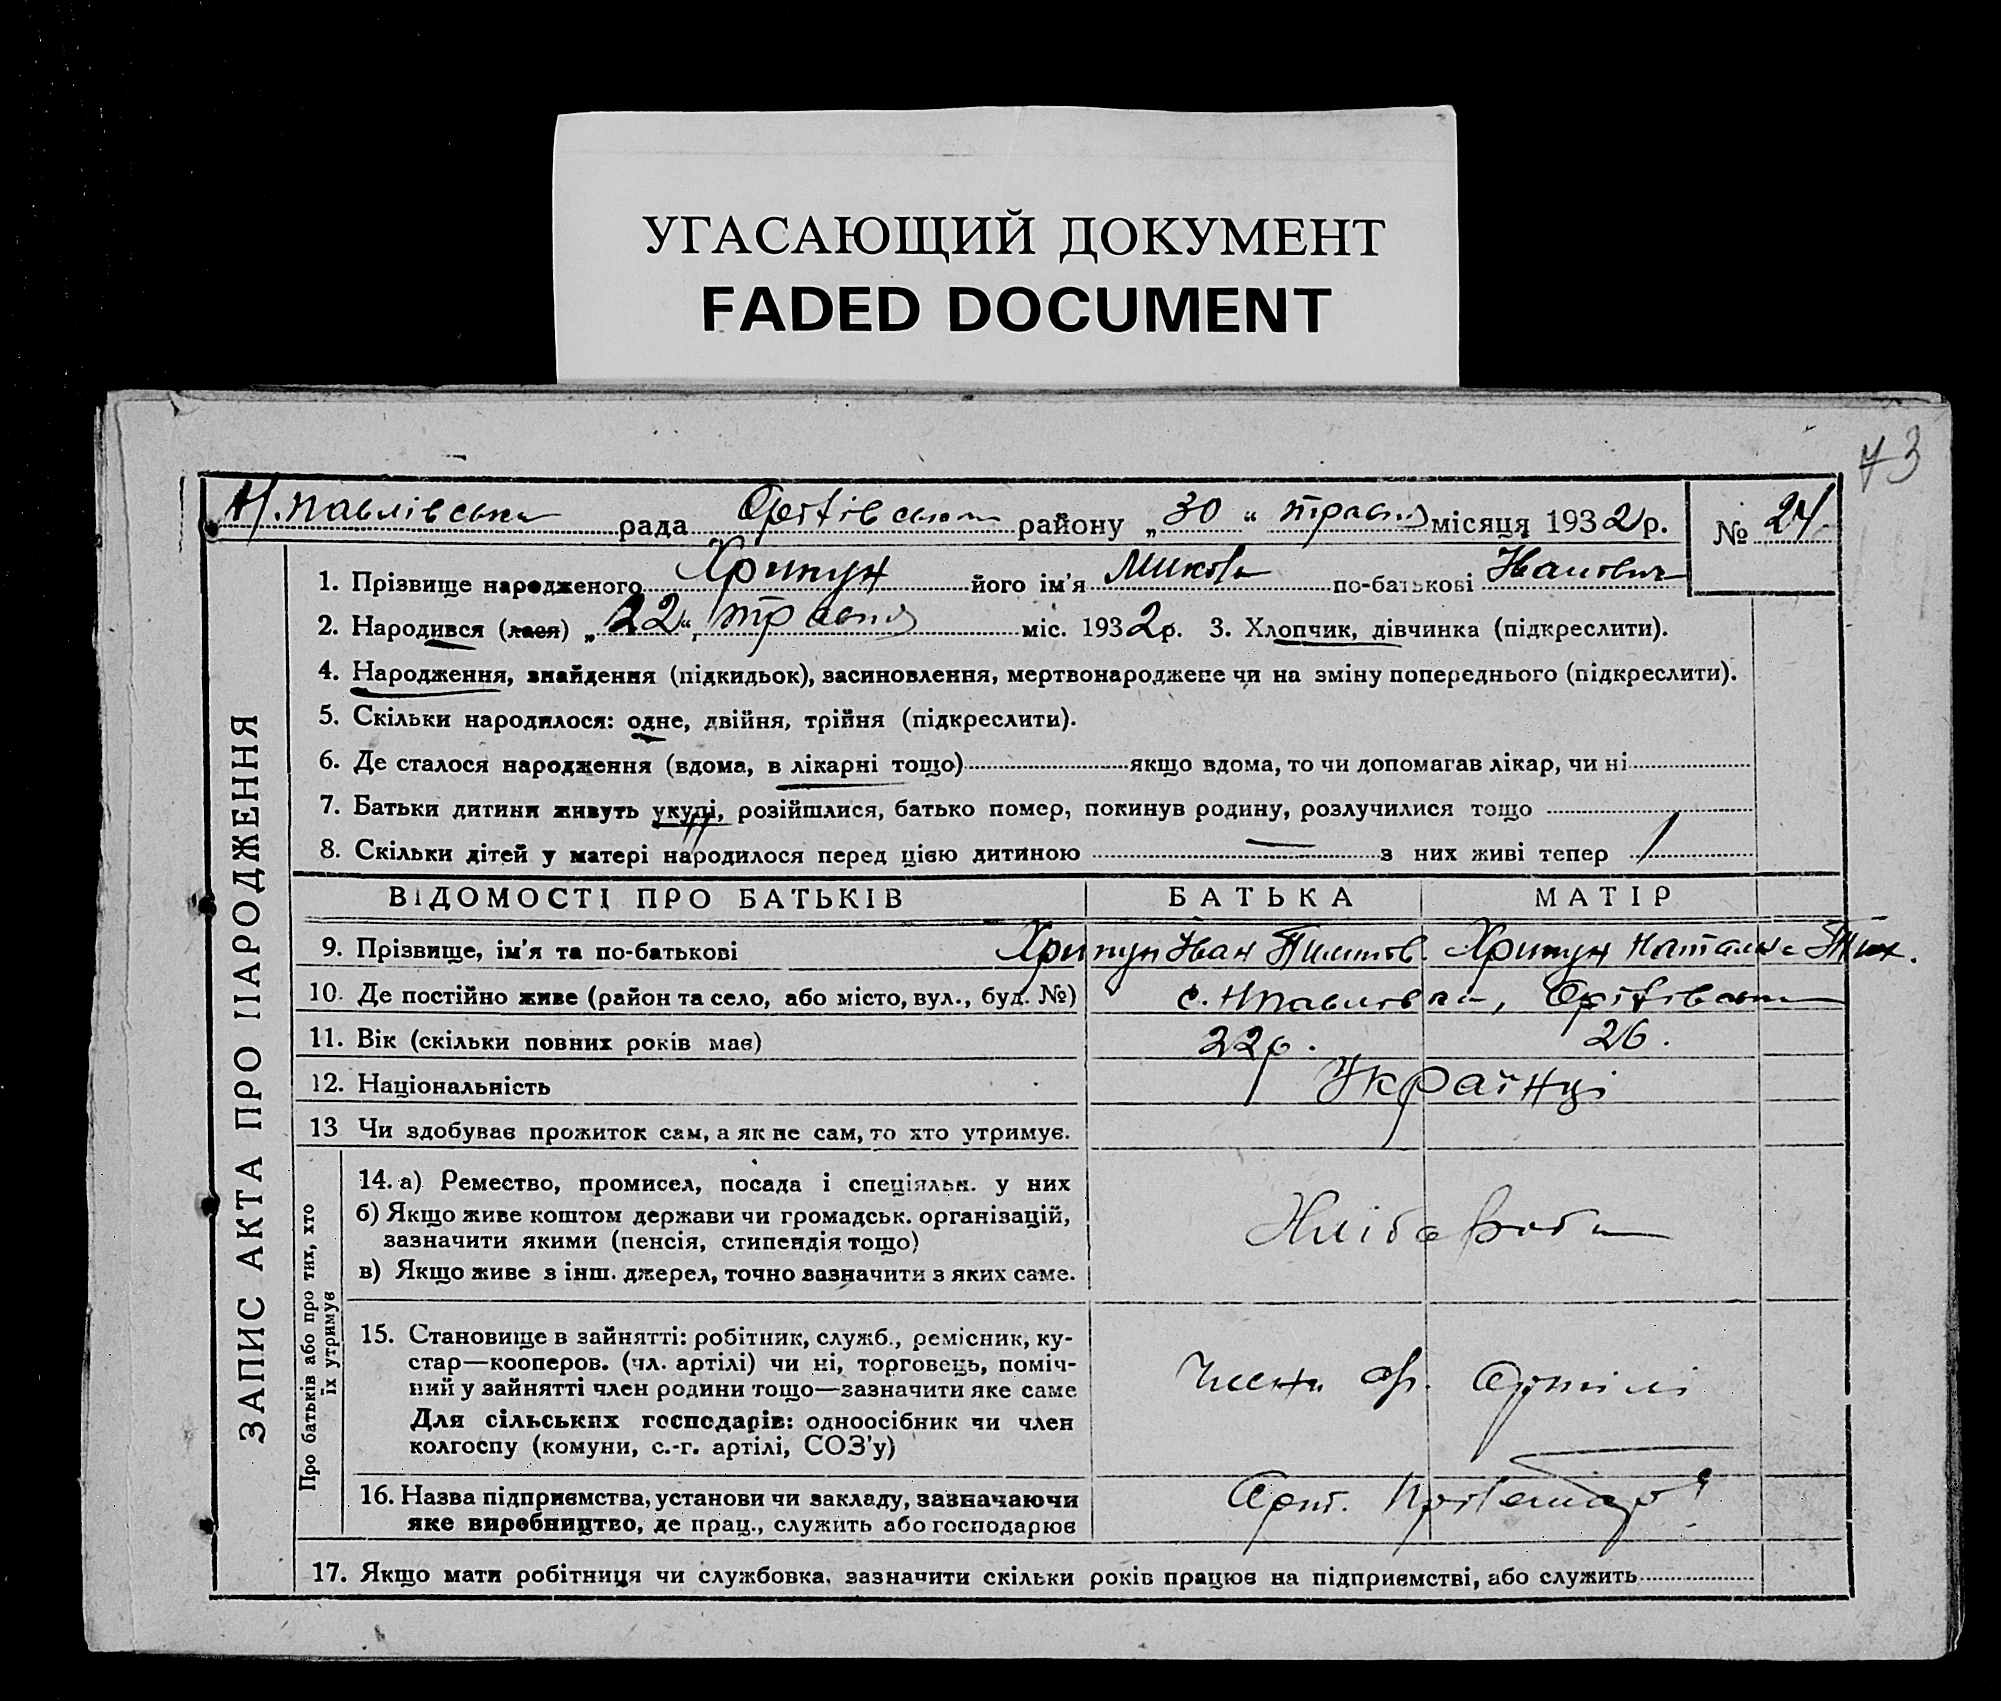 УГАСАЮЩИЙ ДОКУМЕНТ
FADED DOCUMENT
73
Н.павлівська рада Оріхівського району „30“ травня місяця 1932р. № 24
1. Прізвище народженого Хрипун його ім'я Микола по-батькові Іванович
2. Народився (лася) „22“ травня міс. 1932р. 3. Хлопчик, дівчинка (підкреслити).
4. Народження, знайдення (підкидьок), засиновлення, мертвонароджене чи на зміну попереднього (підкреслити).
5. Скільки народилося: одне, двійня, трійня (підкреслити).
6. Де сталося народження (вдома, в лікарні тощо) якщо вдома, то чи допомагав лікар, чи ні
7. Батьки дитини живуть укупі, розійшлися, батько помер, покинув родину, розлучилися тощо
8. Скільки дітей у матері народилося перед цією дитиною — з них живі тепер 1
ЗАПИС АКТА ПРО НАРОДЖЕННЯ
ВІДОМОСТІ ПРО БАТЬКІВ БАТЬКА МАТІР
9. Прізвище, ім'я та по-батькові Хрипун Іван Хрипун Наталка Тих.
10. Де постійно живе (район та село, або місто, вул., буд. №) с. Нпавлівка, Оріхівськ
11. Вік (скільки повних років має) 22р. 26.
12. Національність Українці
13 Чи здобуває прожиток сам, а як не сам, то хто утримує.
Про батьків або про тих, хто
їх утримує
14. а) Ремество, промисел, посада і спеціяльн. у них
б) Якщо живе коштом держави чи громадськ. організацій,
зазначити якими (пенсія, стипендія тощо)
в) Якщо живе з інш. джерел, точно зазначити з яких саме.
Хлібороби
15. Становище в зайнятті: робітник, служб., ремісник, ку-
стар—кооперов. (чл. артілі) чи ні, торговець, поміч-
ний у зайнятті член родини тощо—зазначити яке саме
Для сільських господарів: одноосібник чи член
колгоспу (комуни, с.-г. артілі, СОЗ'у)
Члени артілі
16. Назва підприємства, установи чи закладу, зазначаючи
яке виробництво, де прац., служить або господарює
Арт.
17. Якщо мати робітниця чи службовка, зазначити скільки років працює на підприємстві, або служить